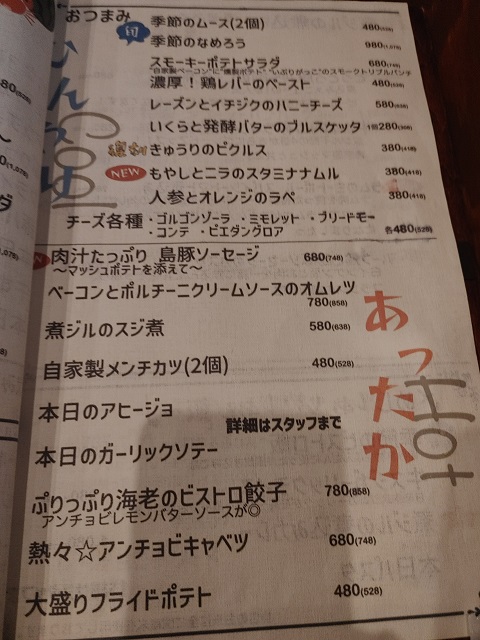 おつまみ
ひんやり
Cold
旬
季節のムース(2個) 480(528)
季節のなめろう 980(1,078)
スモーキーポテトサラダ 680(748)
"自家製ベーコン"に"燻製ポテト" "いぶりがっこ"のスモークトリプルパンチ
濃厚！鶏レバーのペースト 480(528)
レーズンとイチジクのハニーチーズ 580(638)
いくらと発酵バターのブルスケッタ 1個280(308)
きゅうりのピクルス 380(418)
NEW もやしとニラのスタミナナムル 380(418)
人参とオレンジのラペ 380(418)
チーズ各種 ・ゴルゴンゾーラ ・ミモレット ・ブリードモー
・コンテ ・ピエダングロア 各480(528)
あったか
Hot
肉汁たっぷり 島豚ソーセージ 680(748)
〜マッシュポテトを添えて〜
ベーコンとポルチーニクリームソースのオムレツ
780(858)
煮ジルのスジ煮 580(638)
自家製メンチカツ(2個) 480(528)
本日のアヒージョ
詳細はスタッフまで
本日のガーリックソテー
ぷりっぷり海老のビストロ餃子 780(858)
アンチョビレモンバターソースが◎
熱々☆アンチョビキャベツ 680(748)
大盛りフライドポテト 480(528)